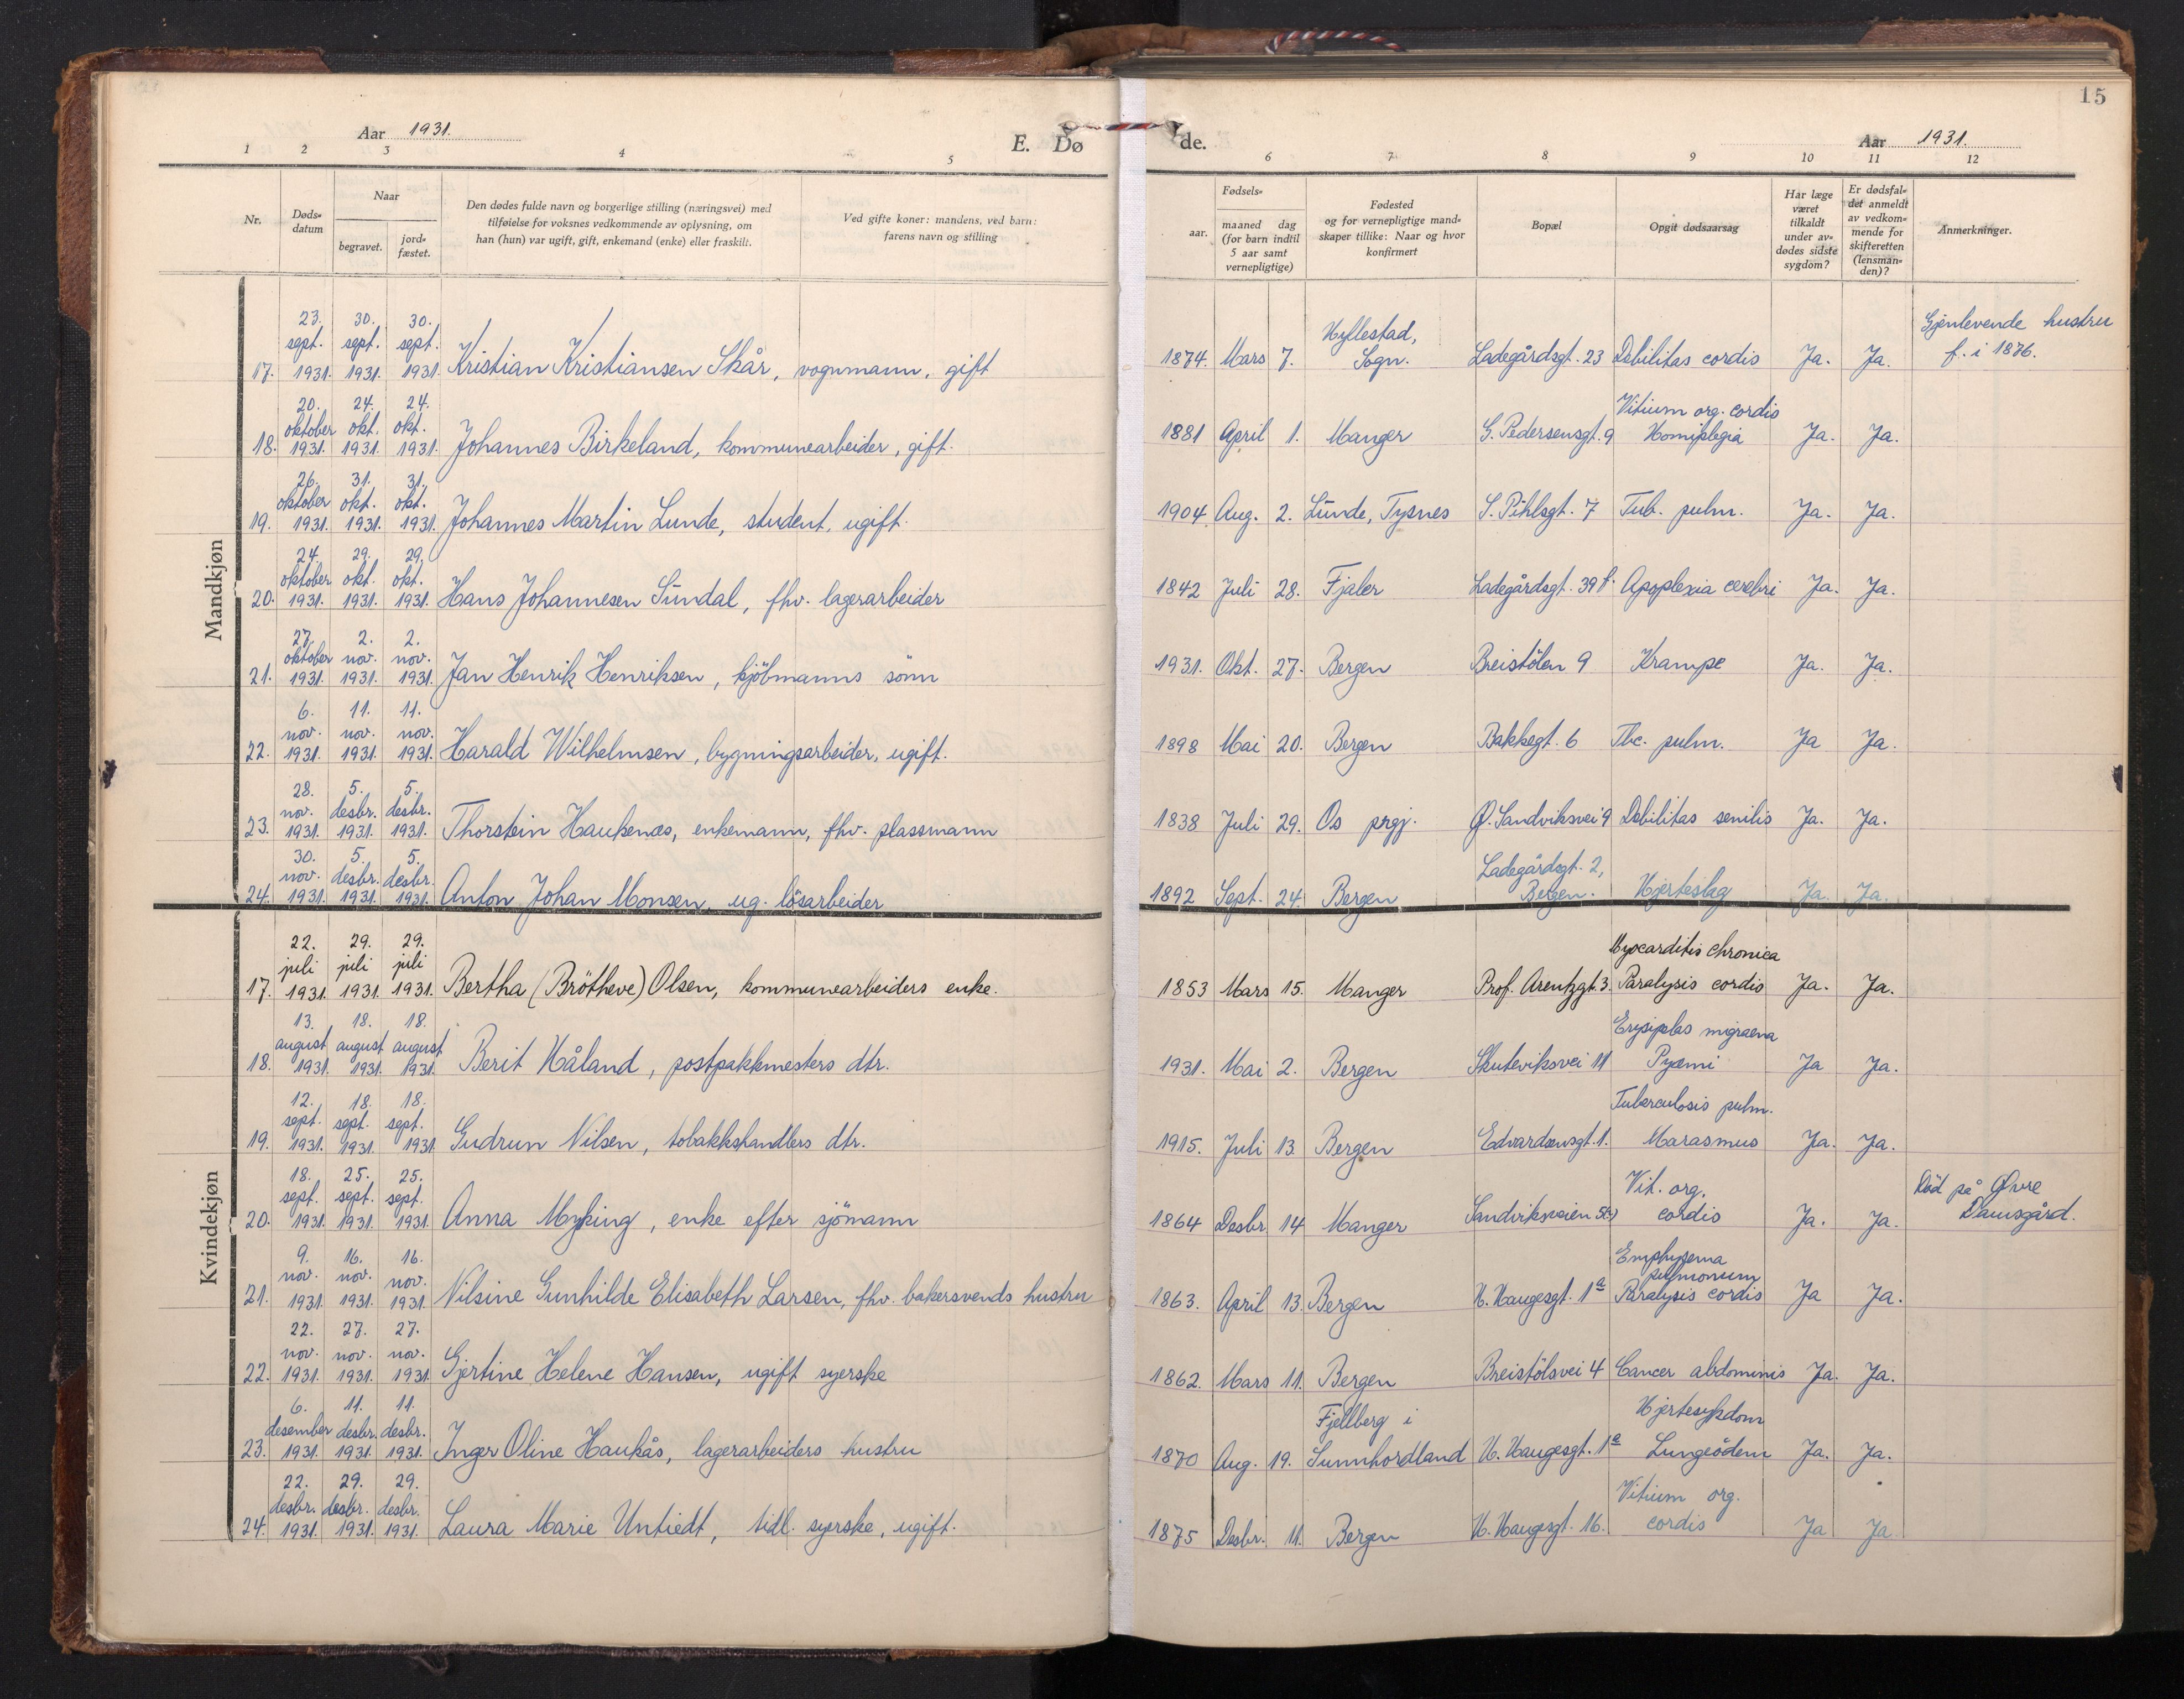 15
Aar 1931.
E. Dø
de.
Aar 1931.
1 2 3 4 5 6 7 8 9 10 11 12
Nr.
Døds-
datum
Naar
begravet.
jord-
fæstet.
Den dødes fulde navn og borgerlige stilling (næringsvei) med
tilføielse for voksnes vedkommende av oplysning, om
han (hun) var ugift, gift, enkemand (enke) eller fraskilt.
Ved gifte koner: mandens, ved barn:
farens navn og stilling
Fødsels-
aar.
maaned dag
(for barn indtil
5 aar samt
vernepligtige)
Fødested
og for vernepligtige mand-
skaper tillike: Naar og hvor
konfirmert
Bopæl
Opgit dødsaarsag
Har læge
været
tilkaldt
under av-
dødes sidste
sygdom?
Er dødsfal-
det anmeldt
av vedkom-
mende for
skifteretten
(lensman-
den)?
Anmerkninger.
Mandkjøn
23. 30. 30. Hyllestad, Gjenlevende hustru
sept. sept. sept. f. i 1876.
17. 1931. 1931. 1931. Kristian Kristiansen Skår, vognmann, gift 1874. Mars 7. Sogn. Ladegårdsgt. 23 Debilitas cordis Ja. Ja.
20. 24. 24. Vitium org. cordis
oktober okt. okt.
18. 1931. 1931. 1931. Johannes Birkeland, kommunearbeider, gift. 1881 April 1. Manger G. Pedersensgt. 9 Homiplegia Ja. Ja.
26. 31. 31.
oktober okt. okt.
19. 1931. 1931. 1931. Johannes Martin Lunde, student, ugift. 1904 Aug. 2. Lunde, Tysnes S. Pihlsgt. 7 Tub. pulm. Ja. Ja.
24. 29. 29.
oktober okt. okt.
20. 1931. 1931. 1931. Hans Johannesen Sundal, fhv. lagerarbeider 1842 Juli 28. Fjaler Ladegårdsgt. 39 Apoplexia cerebri Ja. Ja.
27. 2. 2.
oktober nov. nov.
21. 1931. 1931. 1931. Jan Henrik Henriksen, kjöbmanns sönn 1931. Okt. 27. Bergen Breistölen 9 Krampe Ja. Ja.
6. 11. 11.
nov. nov. nov.
22. 1931. 1931. 1931. Harald Wilhelmsen, bygningsarbeider, ugift. 1898 Mai 20. Bergen Bakkegt. 6 Tbc. pulm. Ja Ja.
28. 5. 5.
nov. desbr. desbr.
23. 1931. 1931. 1931. Thorstein Haukenæs, enkemann, fhv. plassmann 1838 Juli 29. Os prgj. Ø. Sandviksvei 9 Debilitas senilis Ja. Ja.
30. 5. 5. Ladegårdsgt. 2,
nov. desbr. desbr.
24. 1931. 1931. 1931. Anton Johan Monsen, ug. lösarbeider 1892 Sept. 24. Bergen Bergen. Hjerteslag Ja. Ja.
Kvindekjøn
22. 29. 29. Myocarditis chronica
juli juli juli
17. 1931. 1931. 1931. Bertha (Brötheve) Olsen, kommunearbeiders enke. 1853 Mars 15. Manger Prof. Arentzgt. 3. Paralysis cordis Ja. Ja.
13. 18. 18. Erysipelas migraena
august august august
18. 1931. 1931. 1931. Berit Håland, postpakkmesters dtr. 1931. Mai 2. Bergen Skuteviksvei 11 Pyæmi Ja Ja.
12. 18. 18. Tuberculosis pulm.
sept. sept. sept.
19. 1931. 1931. 1931. Gudrun Nilsen, tobakkshandlers dtr. 1915. Juli 13. Bergen Edvardsensgt. 1. Marasmus Ja. Ja.
18. 25. 25. Vit. org. Död på Øvre
sept. sept. sept. Damsgård.
20. 1931. 1931. 1931. Anna Myking, enke efter sjömann 1864 Desbr. 14. Manger Sandviksveien cordis Ja. Ja.
9. 16. 16. Emphysema
nov. nov. nov. pulmonum
21. 1931. 1931. 1931. Nilsine Gunhilde Elisabeth Larsen, fhv. bakersvends hustru 1863. April 13. Bergen H. Haugesgt. 1a Paralysis cordis Ja Ja.
22. 27. 27.
nov. nov. nov.
22. 1931. 1931. 1931. Gjertine Helene Hansen, ugift syerske 1862. Mars 11. Bergen Breistölsvei 4 Cancer abdominis Ja. Ja.
6. 11. 11. Fjellberg i Hjertesykdom
desember desbr. desbr.
23. 1931. 1931. 1931. Inger Oline Haukås, lagerarbeiders hustru 1870 Aug. 19. Sunnhordland H. Haugesgt. 1a Lungeödem Ja. Ja.
22. 29. 29. Vitium org.
desbr. desbr. desbr.
24. 1931. 1931. 1931. Laura Marie Untiedt, tidl. syerske, ugift. 1875 Desbr. 11. Bergen H. Haugesgt. 16. cordis Ja Ja